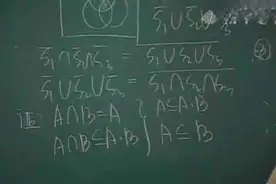 S̅₁∪S̅₂∪
S̅₁∩S̅₂∩S̅₃ = \overline{S₁∪S₂∪S₃}
S̅₁∪S̅₂∪S̅₃ = \overline{S₁∩S₂∩S₃}
A∩B=A A⊆A·B
A∩B=A·B A⊆B